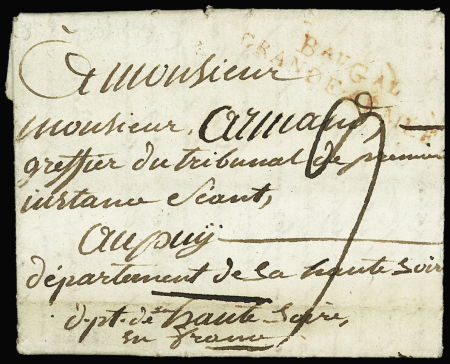 BAU GAL
GRANDE ARMÉE
A monsieur
monsieur, armand
greffier du tribunal de premiere
instance Séant,
au puÿ
département de la haute Loire
d.pt. de haute Loire,
en france
9